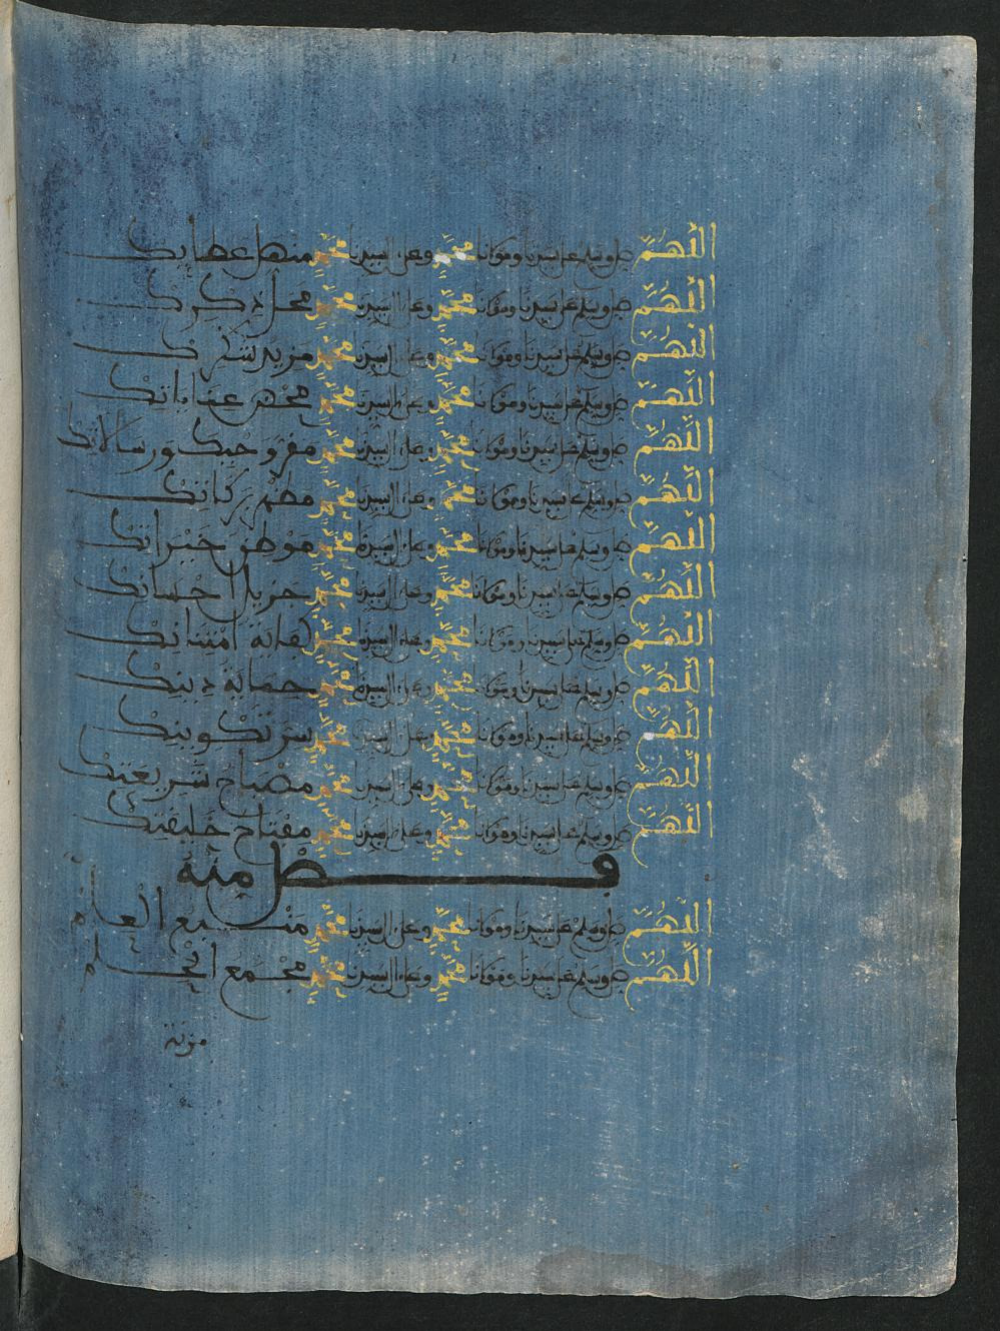 اللهم صل وسلم على سيدنا ومولانا محمد وعلى ال سيدنا محمد منهل عطاياتك
اللهم صل وسلم على سيدنا ومولانا محمد وعلى ال سيدنا محمد محل ذكرك
اللهم صل وسلم على سيدنا ومولانا محمد وعلى ال سيدنا محمد مزيد شكرك
اللهم صل وسلم على سيدنا ومولانا محمد وعلى ال سيدنا محمد عناياتك
اللهم صل وسلم على سيدنا ومولانا محمد وعلى ال سيدنا محمد مفر وحيك ورسالاتك
اللهم صل وسلم على سيدنا ومولانا محمد وعلى ال سيدنا محمد بركاتك
اللهم صل وسلم على سيدنا ومولانا محمد وعلى ال سيدنا محمد موطن خيراتك
اللهم صل وسلم على سيدنا ومولانا محمد وعلى ال سيدنا محمد جزيل احسانك
اللهم صل وسلم على سيدنا ومولانا محمد وعلى ال سيدنا محمد امتنانك
اللهم صل وسلم على سيدنا ومولانا محمد وعلى ال سيدنا محمد حماية دينك
اللهم صل وسلم على سيدنا ومولانا محمد وعلى ال سيدنا محمد سر تكوينك
اللهم صل وسلم على سيدنا ومولانا محمد وعلى ال سيدنا محمد مصباح شريعتك
اللهم صل وسلم على سيدنا ومولانا محمد وعلى ال سيدنا محمد مفتاح خليقتك
فصل منه
اللهم صل وسلم على سيدنا ومولانا محمد وعلى ال سيدنا محمد منبع العلم
اللهم صل وسلم على سيدنا ومولانا محمد وعلى ال سيدنا محمد مجمع الحلم